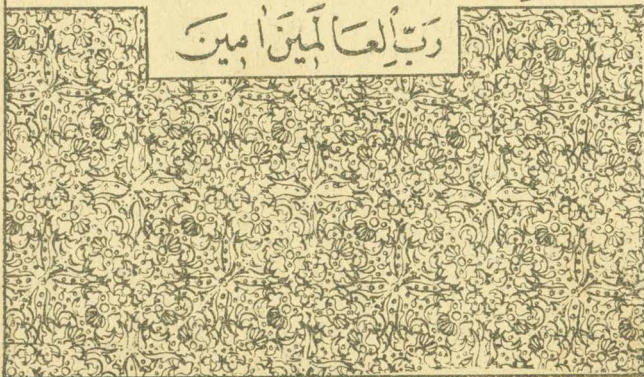 رَبِّ الْعَالَمِينَ اٰمِينَ